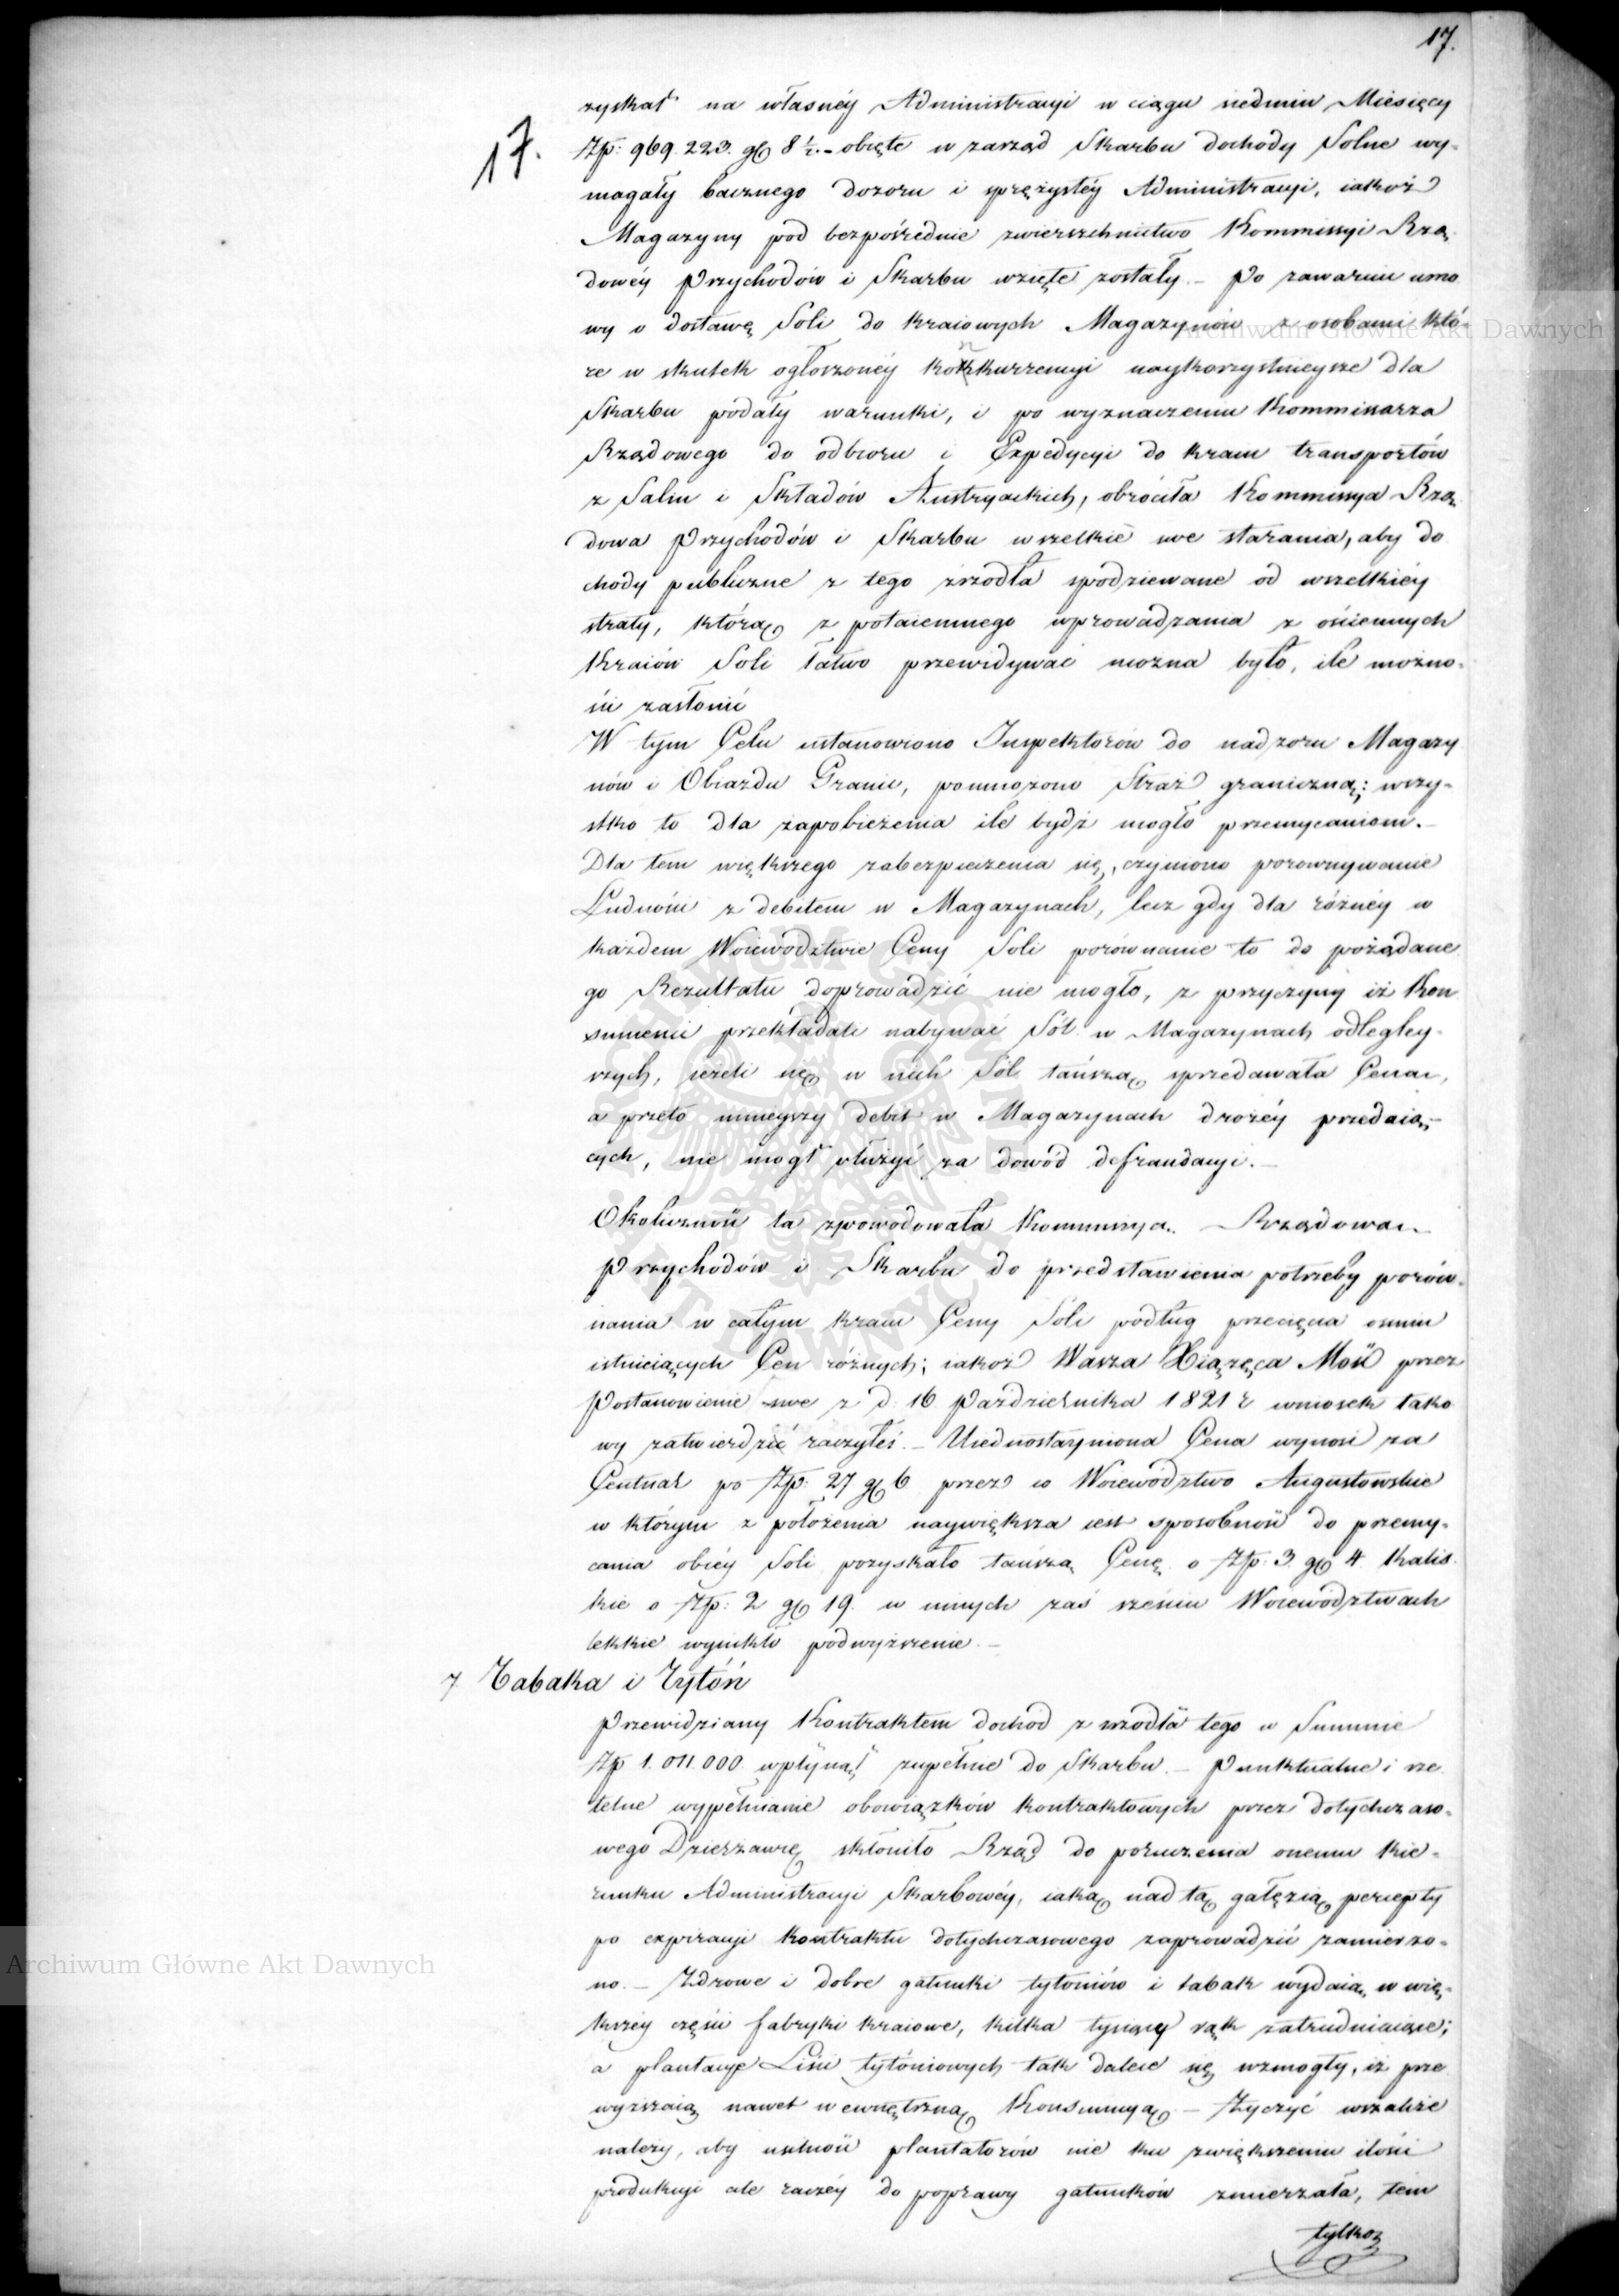 17.
17.
zyskał na własnéy Administracyi w ciągu siedmiu Miesięcy
Złp: 969.223. gr 8 ½.- obięte w zarząd Skarbu dochody Solne wy-
magały bacznego dozoru i sprężystéy Administracyi, iakoż
Magazyny pod bezpośrednie zwierzchnictwo Kommissyi Rzą-
dowéy Przychodów i Skarbu wzięte zostały.- Po zawarciu umo
wy o dostawę Soli do kraiowych Magazynów z osobami któ-
re w skutek ogłoszonéy konkurrencyi naykorzystnieysze dla
Skarbu podały warunki, i po wyznaczeniu Kommissarza
Rządowego do odbioru i Expedycyi do kraiu transportów
z Salin i Składów Austryackich, obróciła Kommissya Rzą-
dowa Przychodów i Skarbu wszelkie swe starania, aby do
chody publiczne z tego źrzodła spodziewane od wszelkiéy
straty, którą z potaiemnego wprowadzania z ościennych
Kraiów Soli łatwo przewidywać można było, ile możno-
ści zasłonić
W tym Celu ustanowiono Inspektorów do nadzoru Magazy
nów i Obiazdu Granic, pomnożono Straż graniczną; wszy-
stko to dla zapobieżenia ile bydź mogło przemycaniom.-
Dla tem większego zabezpieczenia się, czyniono porownywanie
Ludności z debitem w Magazynach, lecz gdy dla różnéy w
każdem Woiewodztwie Ceny Soli porównanie to do pożądane
go Rezultatu doprowadzić nie mogło, z przyczyny iż Kon
sumenci przekładali nabywać Sól w Magazynach odległey-
szych, ieżeli się w nich Sól tańszą sprzedawała Ceną,
a przeto mnieyszy debit w Magazynach drożéy przedaią-
cych, nie mógł służyć za dowód defraudacyi.-
Okoliczność ta spowodowała Kommissya Rządowa
Przychodów i Skarbu do przedstawienia potrzeby porów-
nania w całym kraiu Ceny Soli podług przecięcia osmiu
istnieiących Cen różnych; iakoż Wasza Xiążęca Mość przez
Postanowienie swe z d. 16 Pazdziernika 1821 r wniosek tako
wy zatwierdzić raczyłeś.- Uiednostayniona Cena wynosi za
Centnar po Złp: 27 gr 6 przez co Woiewództwo Augustowskie
w którym z położenia naywiększa iest sposobność do przemy-
cania obcéy Soli pozyskało tańszą Cenę o Złp: 3 gr 4. Kalis
kie o Złp: 2 gr 19. w innych zaś sześciu Woiewództwach
lekkie wynikło podwyższenie.-
7. Tabaka i Tytóń
Przewidziany Kontraktem dochód z źrzodła tego w Summie
Złp 1.011.000 wpłynął zupełnie do Skarbu.- Punktualne i rze
telne wypełnianie obowiązków kontraktowych przez dotychczaso-
wego Dzierżawcę skłoniło Rząd do poruczenia onemu kie-
runku Administracyi Skarbowéy, iaką nad tą gałęzią percepty
po expiracyi kontraktu dotychczasowego zaprowadzić zamierzo-
no.- Zdrowe i dobre gatunki tytoniów i tabak wydaią w wię-
kszéy części fabryki kraiowe, kilka tysięcy rąk zatrudniaiące;
a plantacye Liści tytóniowych tak dalece się wzmogły, iż prze
wyższaią nawet wewnętrzną Konsumcyą.- Życzyć wszakże
należy, aby usilność plantatorów nie ku zwiększeniu ilości
produkcyi ale raczéy do poprawy gatunków zmierzała, tem
tylko
Archiwum Główne Akt Dawnych
Archiwum Główne Akt Dawnych